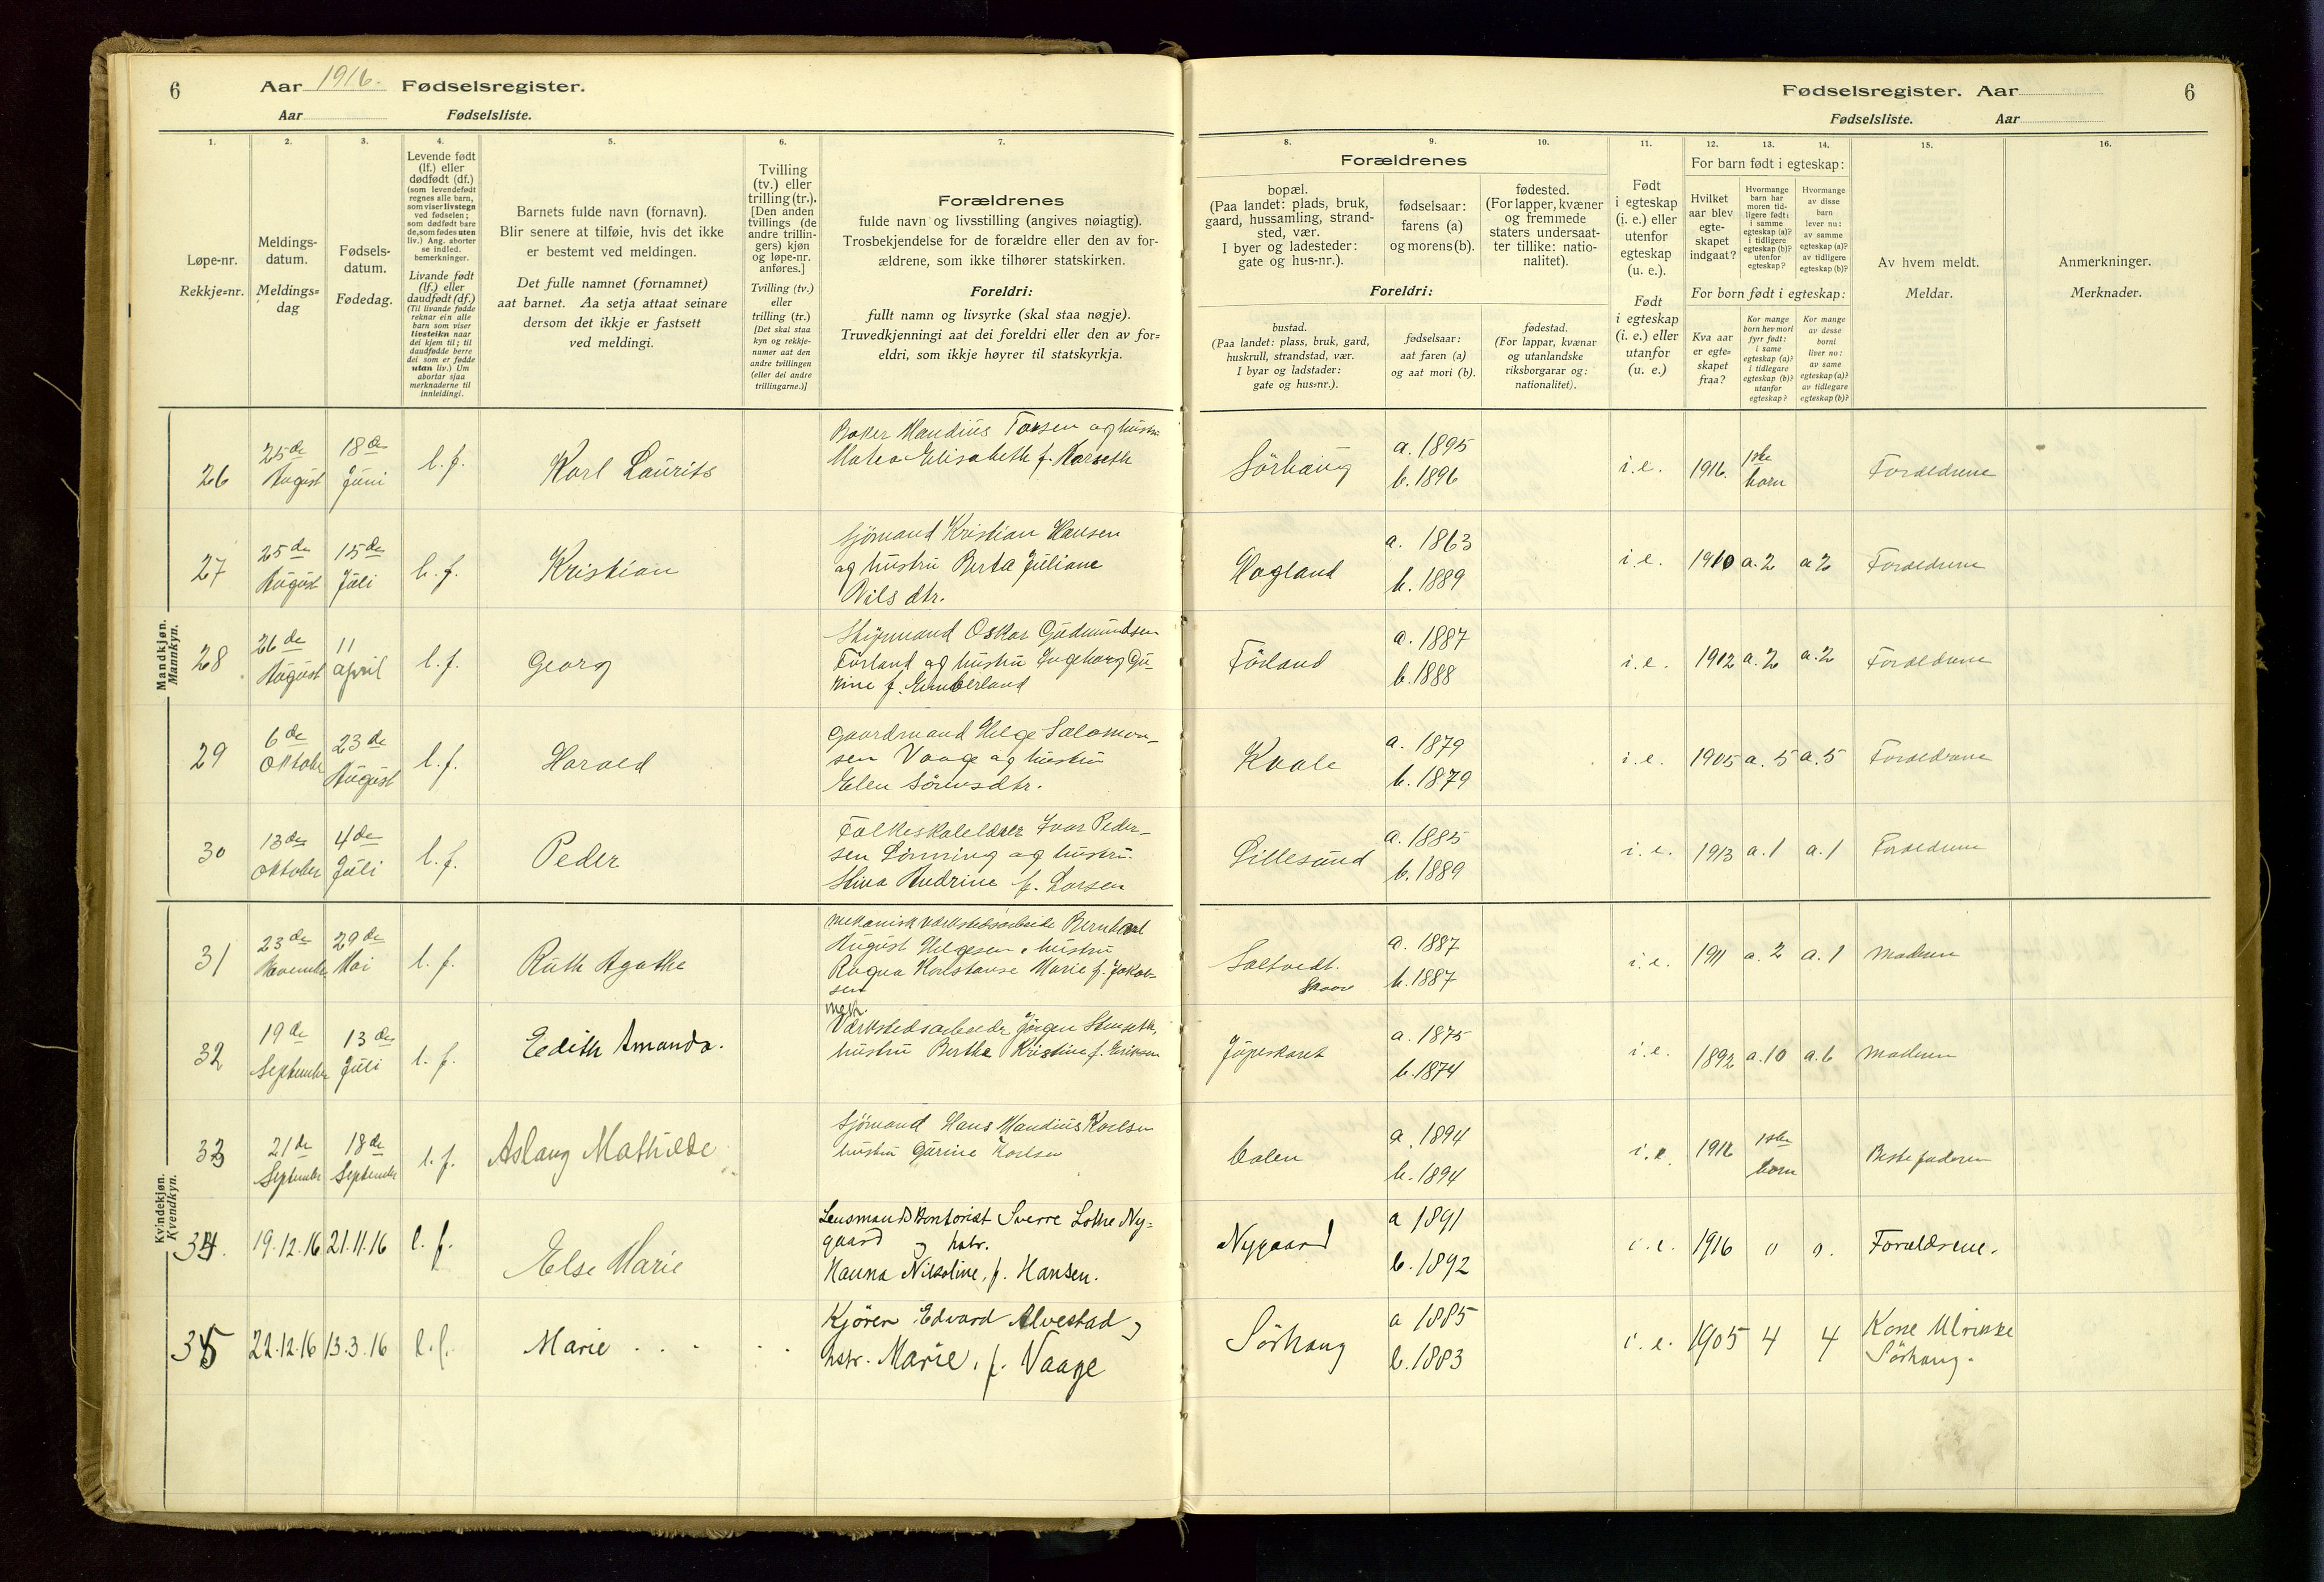 6
Aar 1916. Fødselsregister.
Aar Fødselsliste.
Fødselsregister. Aar
6
Fødselsliste. Aar
1.
2.
3.
4.
5.
6.
7.
8.
9.
10.
11.
12.
13.
14.
15.
16.
Løpe-nr.
Rekkje=nr.
Meldings-
datum.
Meldings=
dag
Fødsels-
datum.
Fødedag.
Levende født
(lf.) eller
dødfødt (df.)
(som levendefødt
regnes alle barn,
som viser livstegn
ved fødselen;
som dødfødt bare
de, som fødes uten
liv.) Ang. aborter
se indled.
bemerkninger.
Livande født
(lf.) eller
daudfødt (df.)
(Til livande fødde
reknar ein alle
barn som viser
livsteikn naar
dei kjem til; til
daudfødde berre
dei som er fødde
utan liv.) Um
abortar sjaa
merknaderne til
innleidingi.
Barnets fulde navn (fornavn).
Blir senere at tilføie, hvis det ikke
er bestemt ved meldingen.
Det fulle namnet (fornamnet)
aat barnet. Aa setja attaat seinare
dersom det ikkje er fastsett
ved meldingi.
Tvilling
(tv.) eller
trilling (tr.).
[Den anden
tvillings (de
andre trillin-
gers) kjøn
og løpe-nr.
anføres.]
Tvilling (tv.)
eller
trilling (tr.)
[Det skal staa
kyn og rekkje-
numer aat den
andre tvillingen
(eller dei andre
trillingarne.)]
Forældrenes
fulde navn og livsstilling (angives nøiagtig).
Trosbekjendelse for de forældre eller den av for-
ældrene, som ikke tilhører statskirken.
Foreldri:
fullt namn og livsyrke (skal staa nøgje).
Truvedkjenningi aat dei foreldri eller den av for=
eldri, som ikkje høyrer til statskyrkja.
Forældrenes
bopæl.
(Paa landet: plads, bruk,
gaard, hussamling, strand-
sted, vær.
I byer og ladesteder:
gate og hus-nr.).
fødselsaar:
farens (a)
og morens (b).
fødested.
(For lapper, kvæner
og fremmede
staters undersaat-
ter tillike: natio-
nalitet).
Foreldri:
bustad.
(Paa landet: plass, bruk, gard,
huskrull, strandstad, vær.
I byar og ladstader:
gate og hus=nr.).
fødselsaar:
aat faren (a)
og aat mori (b).
fødestad.
(For lappar, kvænar
og utanlandske
riksborgarar og:
nationalitet).
Født
i egteskap
(i. e.) eller
utenfor
egteskap
(u. e.).
Født
i egteskap
(i. e.) eller
utanfor
(u. e.)
For barn født i egteskap:
Hvilket
aar blev
egte-
skapet
indgaat?
Hvormange
barn har
moren tid-
ligere født:
i samme
egteskap (a)?
i tidligere
egteskap (b)?
utenfor
egteskap?
Hvormange
av disse
barn
lever nu:
av samme
egteskap (a)?
av tidligere
egteskap (b)?
For born født i egteskap:
Kva aar
er egte=
skapet
fraa?
Kor mange
born hev mori
fyrr født:
i same
egteskap (a)?
i tidlegare
egteskap (b)?
utanfor
egteskap?
Kor mange
av desse
borni
liver no:
av same
egteskap (a)?
av tidlegare
egteskap (b)?
Av hvem meldt.
Meldar.
Anmerkninger.
Merknader.
Mandkjøn.
Mannkyn.
26 25de August 18de Juni l. f. Karl Laurits
Baker Mandius Torsen og hustru
Matea Elisabeth f. Marseth
Sørhaug a. 1895 b. 1896 i. e. 1916. 1ste barn Forældrene
27 25de August 15de Juli l. f. Kristian
Sjömand Kristian Hansen
og hustru Berta Juliane
Nils dtr.
Hagland a. 1863 b. 1889 i. e. 1910 a. 2 a 2 Forældrene
28 26de August 11 april l. f. Georg
Styrmand Oskar Gudmundsen
Førland og hustru Ingeborg Gu-
rine f. Emberland
Førland a. 1887 b. 1888 i. e. 1912 a. 2 a. 2 Forældrene
29 6de Oktober 23de August l. f. Harald
Gaardmand Helge Salomon-
sen Vaage og hustru
Elen Sørensdtr.
Kvale a. 1879 b. 1879 i. e. 1905 a. 5 a. 5 Forældrene
30 13de Oktober 4de Juli l. f. Peder
Folkeskolelærer Ivar Peder-
sen Lønning og hustru
Stina Andrine f. Larsen
Lillesund a. 1885 b. 1889 i. e. 1913 a. 1 a. 1 Forældrene
Kvindekjøn.
Kvendkyn.
31 23de November 29de Mai l. f. Ruth Agathe
Mekanisk Værkstedsarbeide Bernhard
August Helgesen. hustru
Ragna Konstanse Marie f. Jakob-
sen
Saltvedt. Skaare a. 1887 b. 1887 i. e. 1911 a. 2 a. 1 Moderen
32 19de September 13de Juli l. f. Eedith Amanda.
Mek.
Værkstedsarbeider Jørgen Stenseth,
hustru Berthe Kristine f. Eriksen
Jupeskaret a. 1875 b. 1874 i. e. 1892 a. 10 a. 6 Moderen
33 21de September 18de September l. f. Aslaug Mathilde
Sjömand Hans Mandius Koelsen
hustru Gurine Koelsen
a. 1894 b. 1894 i. e. 1916 1ste barn Bestefaderen
34. 19.12.16 21.11.16 l. f. Else Marie
Lensmandskontorist Sverre Lothe Ny=
gaard og hstr.
Hanna Nikoline, f. Hansen.
Nygaard a 1891 b. 1892 i. e. 1916 0 0. Forældrene.
35 22.12.16 13.3.16 l. f. Marie
Kjörer Edvard Alvestad og
hstr. Marie, f. Vaage
Sørhaug a 1885 b. 1883 i. e. 1905 4 4 Kone Ulrikke
Sørhaug.